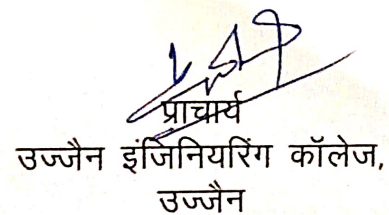 प्राचार्य
उज्जैन इंजिनियरिंग कॉलेज,
उज्जैन